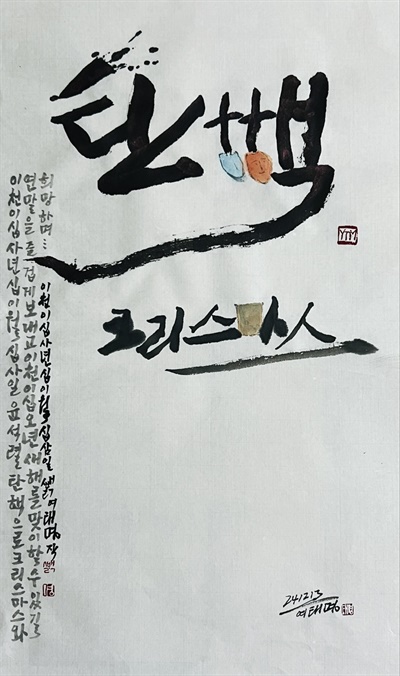 탄핵
크리스마스
이천이십사년십이월십사일 윤석렬 탄핵으로크리스마스와
연말을 즐겁게보내고이천이십오년 새해를맞이할수있길
희망하며...
이천이십사년십이월십삼일 여태명 작
YTM
241213
여태명